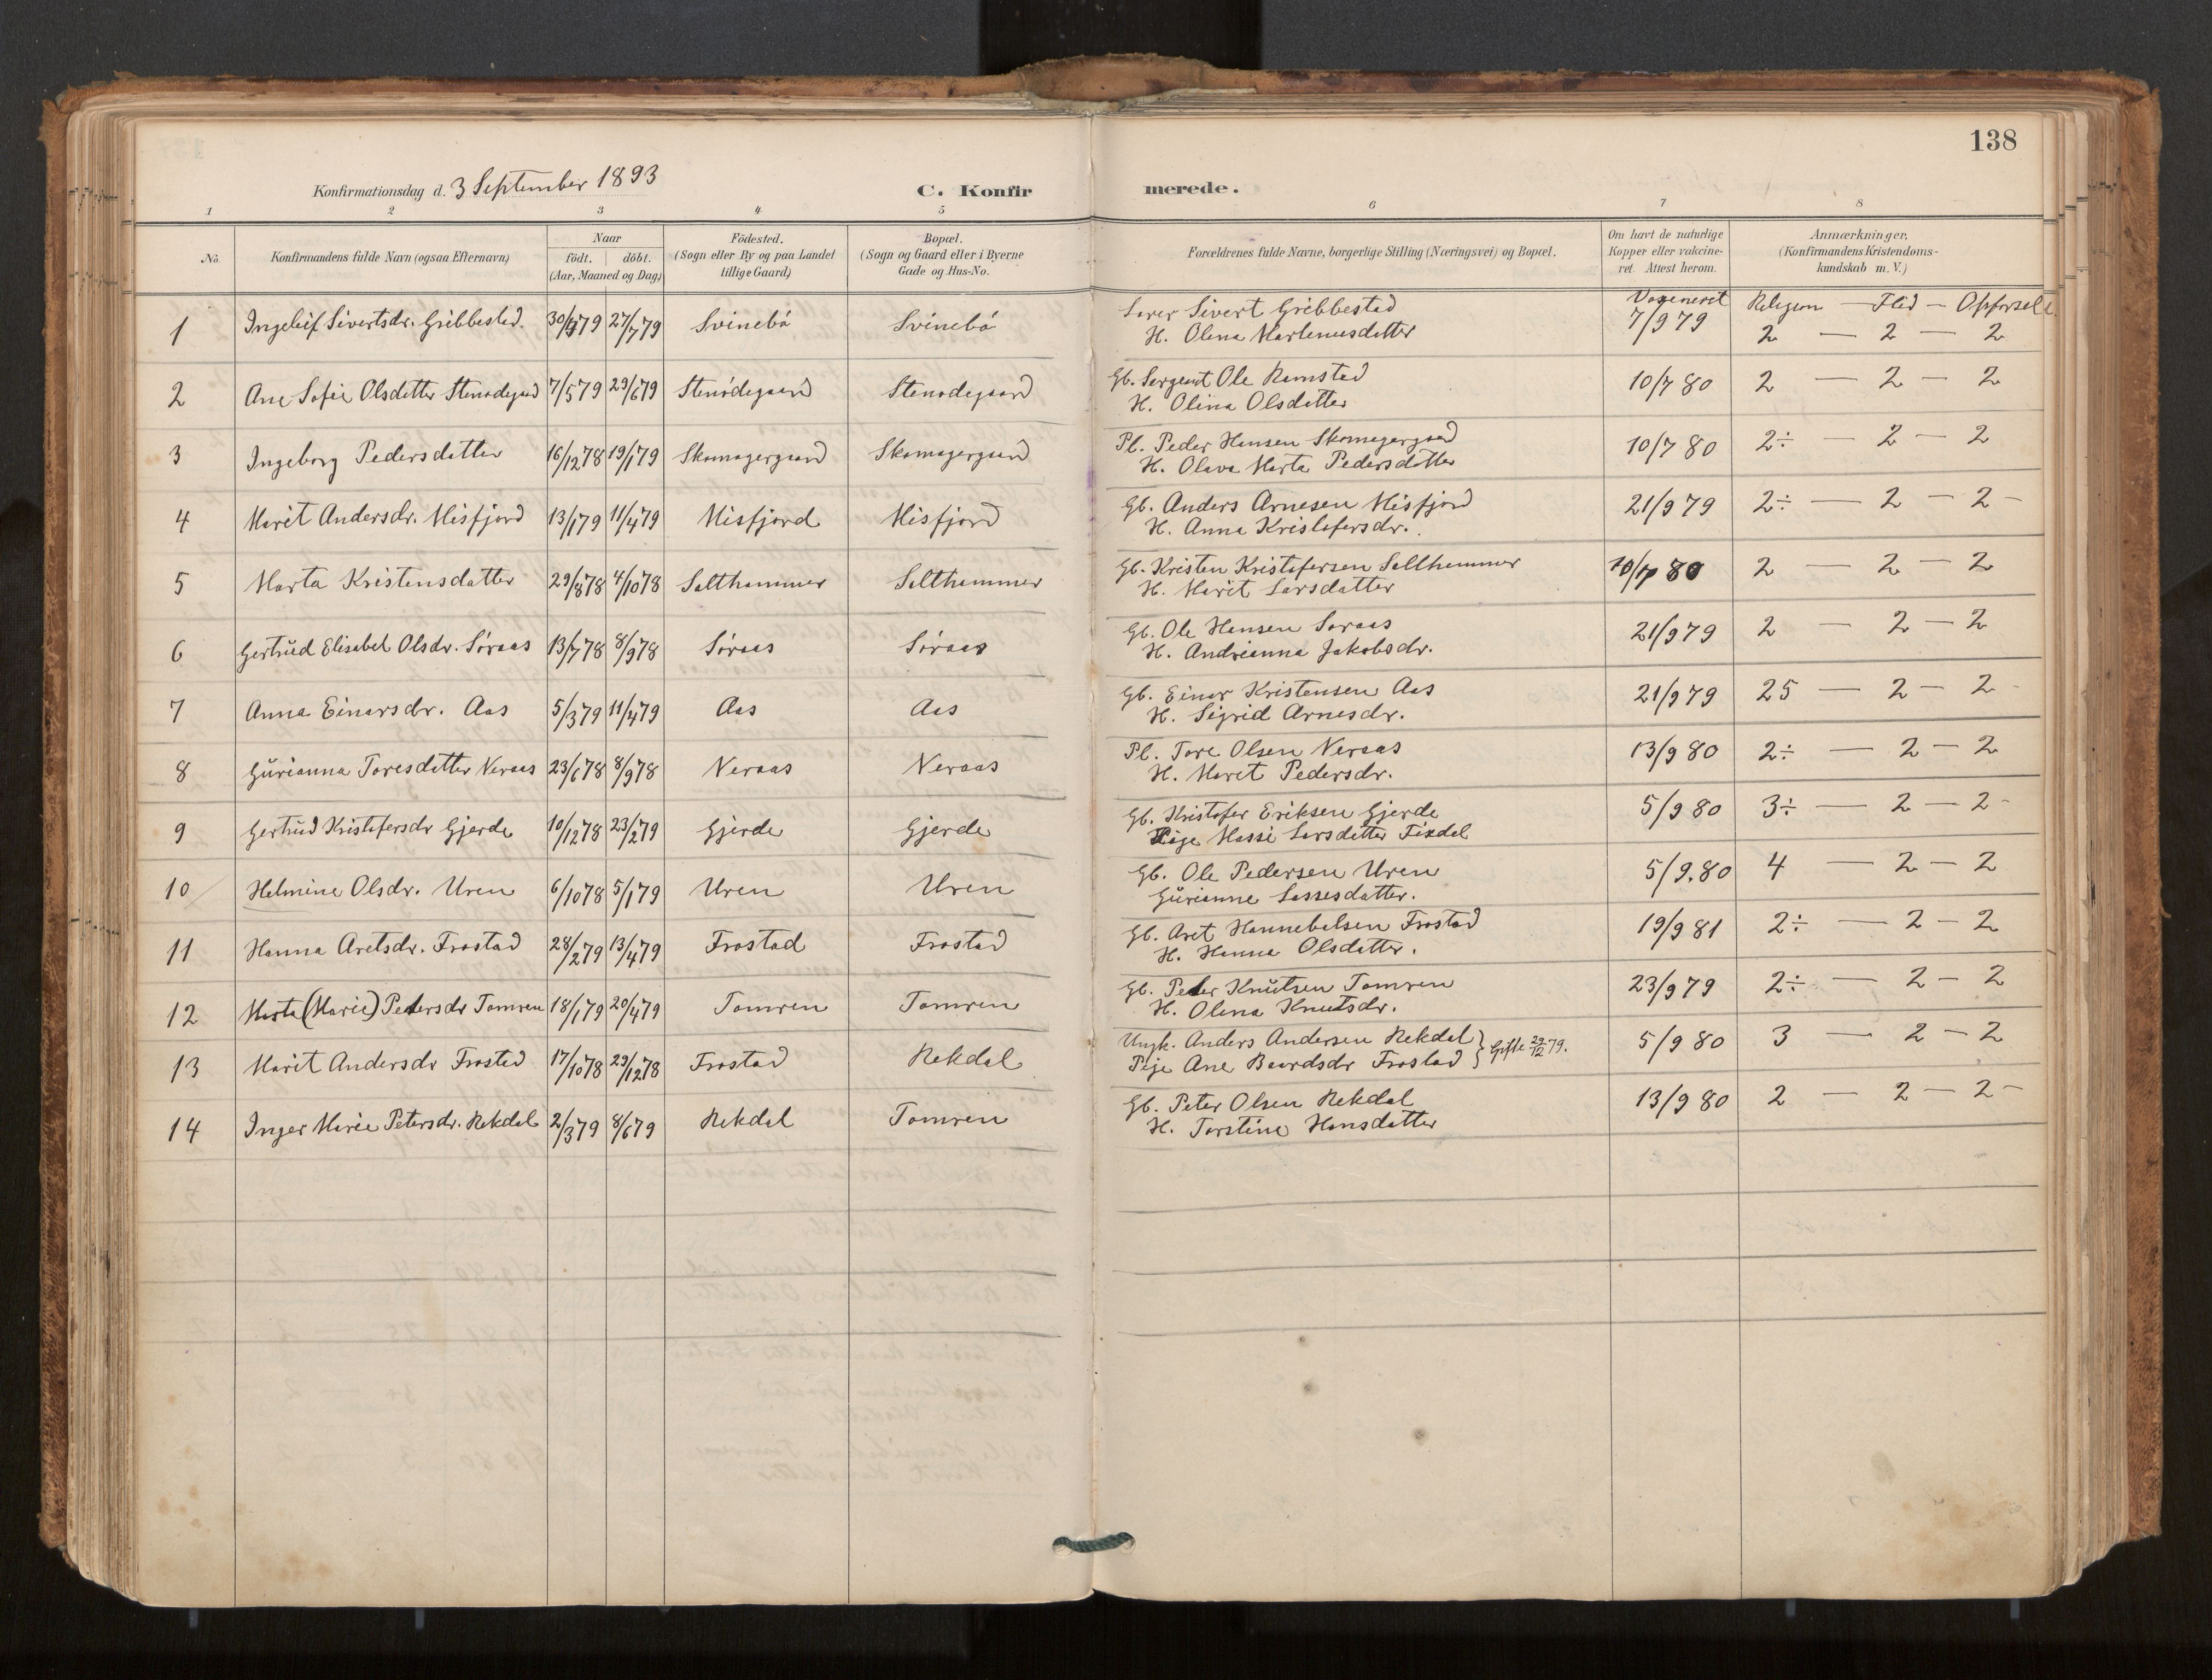 138
Konfirmationsdag d. 3 September 1893 C. Konfirmerede.
1 2 3 4 5 6 7 8
No. Konfirmandens fulde Navn (ogsaa Efternavn) Naar födt. döbt. (Aar, Maaned og Dag) Födested. (Sogn eller By og paa Landet tillige Gaard) Bopæl. (Sogn og Gaard eller i Byerne Gade og Hus-No. Forældrenes fulde Navne, borgerlige Stilling (Næringsvei) og Bopæl. Om havt de naturlige Kopper eller vakcineret. Attest herom. Anmærkninger, (Konfirmandens Kristendomskundskab m. V.)
1 Sivertsdr. Gribbestad. 79 27/7 79 Svinebó Svinebó Lærer Sivert Gribbestad 7/9 79 Religion — Flid — Opførsel
H. Olena Martenusdatter 2 — 2 — 2
2 Ane Sofie Olsdatter Stenødegaard 7/5 79 29/6 79 Stenødegaard Stenødegaard Gb. Sergent Ole Ramstad 10/7 80 2 — 2 — 2
H. Olina Olsdatter
3 Ingeborg Pedersdatter 16/12 78 19/1 79 Skomagergaard Skomagergaard Pl. Peder Hansen Skomagergaard 10/7 80 2÷ — 2 — 2
H. Olava Marta Pedersdatter
4 Marit Andersdr. Misfjord 13/1 79 11/4 79 Misfjord Misfjord Gb. Anders Arnesen Misfjord 21/9 79 2÷ — 2 — 2 —
H. Anna Kristofersdr.
5 Marta Kristensdatter 29/8 78 4/10 78 Salthammer Salthammer Gb. Kristen Kristofersen Salthammer 10/7 80 2 — 2 — 2
H. Marit Larsdatter
6 Gertrud Elisabet Olsdr. Søraas 13/7 78 8/9 78 Søraas Søraas Gb. Ole Hansen Søraas 21/9 79 2 — 2 — 2
H. Andrianna Jakobsdr.
7 Anna Einarsdr. Aas 5/3 79 11/4 79 Aas Aas Gb. Einar Kristensen Aas 21/9 79 25 — 2 — 2
H. Sigrid Arnesdr.
8 Gurianna Toresdatter Neraas 23/6 78 8/9 78 Neraas Neraas Pl. Tore Olsen Neraas 13/9 80 2÷ — 2 — 2
H. Marit Pedersdr.
9 Gertrud Kristofersdr Gjerde 10/12 78 23/2 79 Gjerde Gjerde Gb. Kristofer Eriksen Gjerde 5/9 80 3÷ — 2 — 2
Pige Massi Larsdatter Fixdal
10 Helmine Olsdr. Uren 6/10 78 5/1 79 Uren Uren Gb. Ole Pedersen Uren 5/9.80 4 — 2 — 2
Gurianne Lassesdatter.
11 Hanna Aretsdr. Frostad 28/2 79 13/4 79 Frostad Frostad Gb. Aret Hannebalsen Frostad 19/9 81 2÷ — 2 — 2
H. Hanna Olsdatter.
12 Marta (Marie) Pedersdr Tomren 18/1 79 20/4 79 Tomren Tomren Gb. Peder Knutsen Tomren 23/9 79 2÷ — 2 — 2
H. Olena Knutsdr.
13 Marit Andersdr Frostad 17/10 78 29/12 78 Frostad Rekdal Ungk. Anders Andersen Rekdal } Gifte 29/12 79. 5/9 80 3 — 2 — 2
Pige Ane Baardsdr Frostad
14 Inger Marie Petersdr. Rekdal 2/3 79 8/6 79 Rekdal Tomren Gb. Peter Olsen Rekdal 13/9 80 2 — 2 — 2 —
H. Torstine Hansdatter